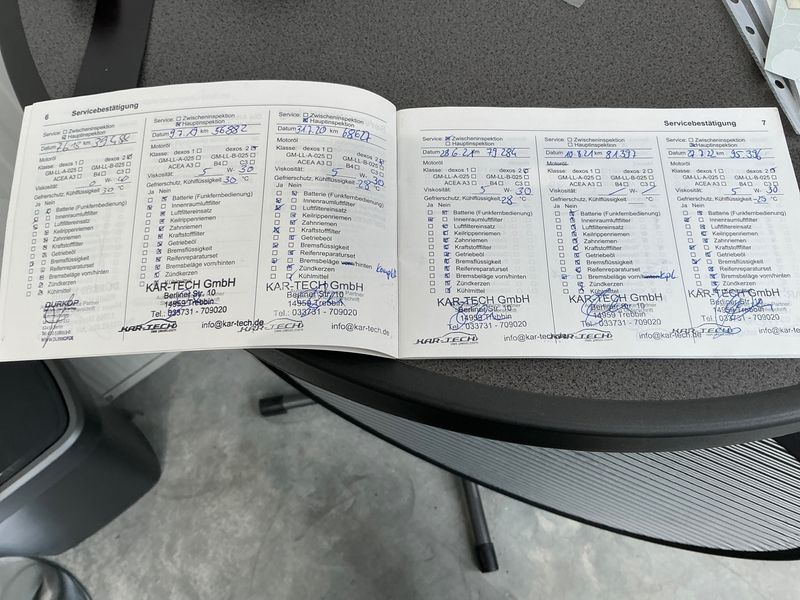 6 Servicebestätigung
Service: Zwischeninspektion
Hauptinspektion
Datum km 79.488
Motoröl
Klasse: dexos 1 dexos 2
GM-LL-A-025 GM-LL-B-025
ACEA A3 B4 C3
Viskosität: W-
Gefrierschutz, Kühlflüssigkeit 30 °C
Ja Nein
Batterie (Funkfernbedienung)
Innenraumluftfilter
Luftfiltereinsatz
Keilrippenriemen
Zahnriemen
Kraftstofffilter
Getriebeöl
Bremsflüssigkeit
Reifenreparaturset
Bremsbeläge vorn/hinten
Zündkerzen
Kühlmittel
DÜRKOP
Service: Zwischeninspektion
Hauptinspektion
Datum 9.7.19 km 56882
Motoröl
Klasse: dexos 1 dexos 2
GM-LL-A-025 GM-LL-B-025
ACEA A3 B4 C3
Viskosität: 5 W- 30
Gefrierschutz, Kühlflüssigkeit 30 °C
Ja Nein
Batterie (Funkfernbedienung)
Innenraumluftfilter
Luftfiltereinsatz
Keilrippenriemen
Zahnriemen
Kraftstofffilter
Getriebeöl
Bremsflüssigkeit
Reifenreparaturset
Bremsbeläge vorn/hinten
Zündkerzen
KAR-TECH GmbH
Berliner Str. 10
14959 Trebbin
Tel.: 033731 - 709020
KAR-TECH info@kar-tech.de
Service: Zwischeninspektion
Hauptinspektion
Datum 31.7.20 km 68627
Motoröl
Klasse: dexos 1 dexos 2
GM-LL-A-025 GM-LL-B-025
ACEA A3 B4 C3
Viskosität: 5 W- 30
Gefrierschutz, Kühlflüssigkeit 28 °C
Ja Nein
Batterie (Funkfernbedienung)
Innenraumluftfilter
Luftfiltereinsatz
Keilrippenriemen
Zahnriemen
Kraftstofffilter
Getriebeöl
Bremsflüssigkeit
Reifenreparaturset
Bremsbeläge vorn/hinten
Zündkerzen
Kühlmittel
KAR-TECH GmbH
Berliner Str. 10
14959 Trebbin
Tel.: 033731 - 709020
KAR-TECH info@kar-tech.de
Servicebestätigung 7
Service: Zwischeninspektion
Hauptinspektion
Datum 28.6.21 79.284
Motoröl
Klasse: dexos 1 dexos 2
GM-LL-A-025 GM-LL-B-025
ACEA A3 B4 C3
Viskosität: 5 W- 30
Gefrierschutz, Kühlflüssigkeit 28 °C
Ja Nein
Batterie (Funkfernbedienung)
Innenraumluftfilter
Luftfiltereinsatz
Keilrippenriemen
Zahnriemen
Kraftstofffilter
Getriebeöl
Bremsflüssigkeit
Reifenreparaturset
Bremsbeläge vorn/hinten
Zündkerzen
Kühlmittel
KAR-TECH GmbH
Berliner Str. 10
14959 Trebbin
Tel.: 033731 - 709020
KAR-TECH info@kar-tech.de
Service: Zwischeninspektion
Hauptinspektion
Datum 10.8.21 km 81.397
Motoröl
Klasse: dexos 1 dexos 2
GM-LL-A-025 GM-LL-B-025
ACEA A3 B4 C3
Viskosität: W-
Gefrierschutz, Kühlflüssigkeit °C
Ja Nein
Batterie (Funkfernbedienung)
Innenraumluftfilter
Luftfiltereinsatz
Keilrippenriemen
Zahnriemen
Kraftstofffilter
Getriebeöl
Bremsflüssigkeit
Reifenreparaturset
Bremsbeläge vorn/hinten kpl
Zündkerzen
Kühlmittel
KAR-TECH GmbH
Berliner Str. 10
14959 Trebbin
Tel.: 033731 - 709020
KAR-TECH info@kar-tech.de
Service: Zwischeninspektion
Hauptinspektion
Datum km
Motoröl
Klasse: dexos 1 dexos 2
GM-LL-A-025 GM-LL-B-025
ACEA A3 B4 C3
Viskosität: 5 W- 30
Gefrierschutz, Kühlflüssigkeit -25 °C
Ja Nein
Batterie (Funkfernbedienung)
Innenraumluftfilter
Luftfiltereinsatz
Keilrippenriemen
Zahnriemen
Kraftstofffilter
Getriebeöl
Bremsflüssigkeit
Reifenreparaturset
Bremsbeläge vorn/hinten
Zündkerzen
Kühlmittel
KAR-TECH GmbH
Berliner Str. 10
14959 Trebbin
Tel.: 033731 - 709020
KAR-TECH info@kar-tech.de